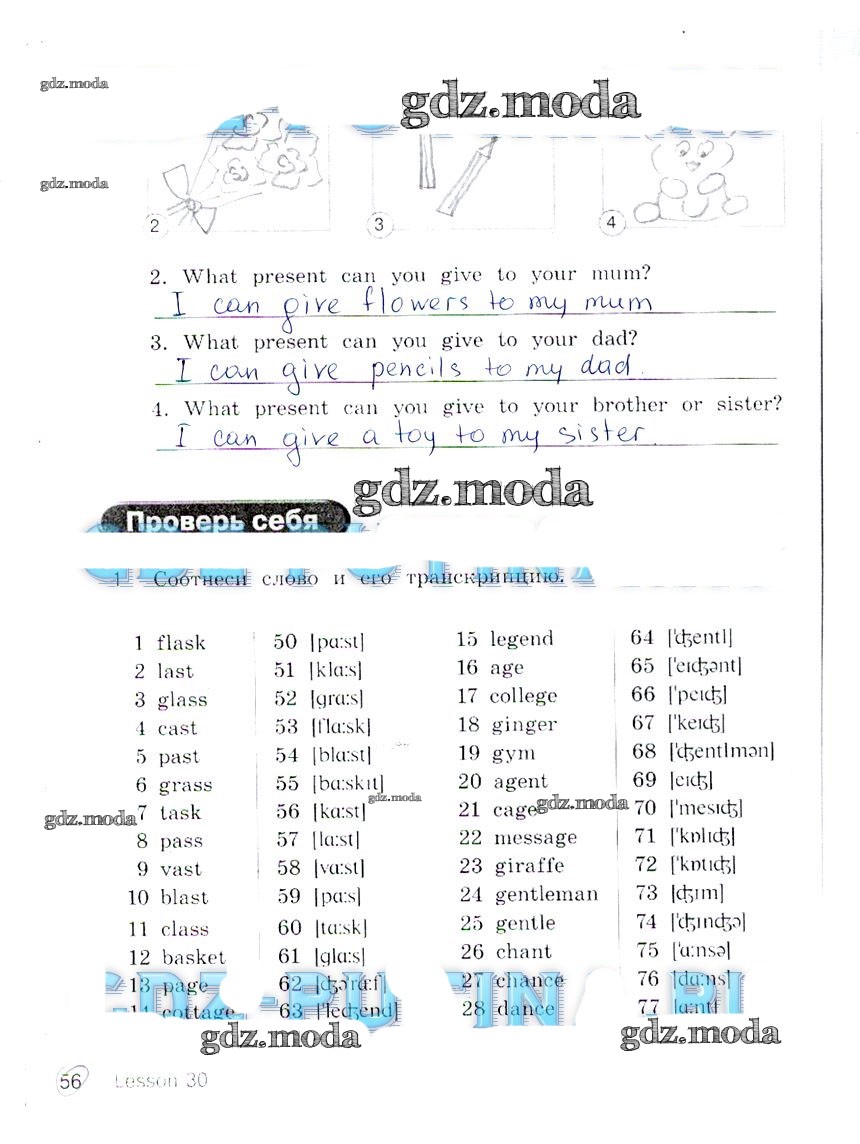 gdz.moda
gdz.moda
gdz.moda
2 3 4
2. What present can you give to your mum?
I can give flowers to my mum
3. What present can you give to your dad?
I can give pencils to my dad.
4. What present can you give to your brother or sister?
I can give a toy to my sister.
gdz.moda
Проверь себя
1 Соотнеси слово и его транскрипцию.
1 flask 50 [pɑ:st] 15 legend 64 [ˈʤentl]
2 last 51 [klɑ:s] 16 age 65 [ˈeɪʤənt]
3 glass 52 [grɑ:s] 17 college 66 [ˈpeɪʤ]
4 cast 53 [flɑ:sk] 18 ginger 67 [ˈkeɪʤ]
5 past 54 [blɑ:st] 19 gym 68 [ˈʤentlmən]
6 grass 55 [bɑ:skɪt] 20 agent 69 [eɪʤ]
gdz.moda 7 task 56 [kɑ:st] gdz.moda 21 cage gdz.moda 70 [ˈmesɪʤ]
8 pass 57 [lɑ:st] 22 message 71 [ˈkɒlɪʤ]
9 vast 58 [vɑ:st] 23 giraffe 72 [ˈkɒtɪʤ]
10 blast 59 [pɑ:s] 24 gentleman 73 [ʤɪm]
11 class 60 [tɑ:sk] 25 gentle 74 [ˈʤɪnʤə]
12 basket 61 [glɑ:s] 26 chant 75 [ˈɑ:nsə]
13 page 62 [ʤərɑ:f] 27 chance 76 [dɑ:ns]
14 cottage 63 [ˈleʤend] 28 dance 77 [ɑ:nt]
gdz.moda gdz.moda
56 Lesson 30